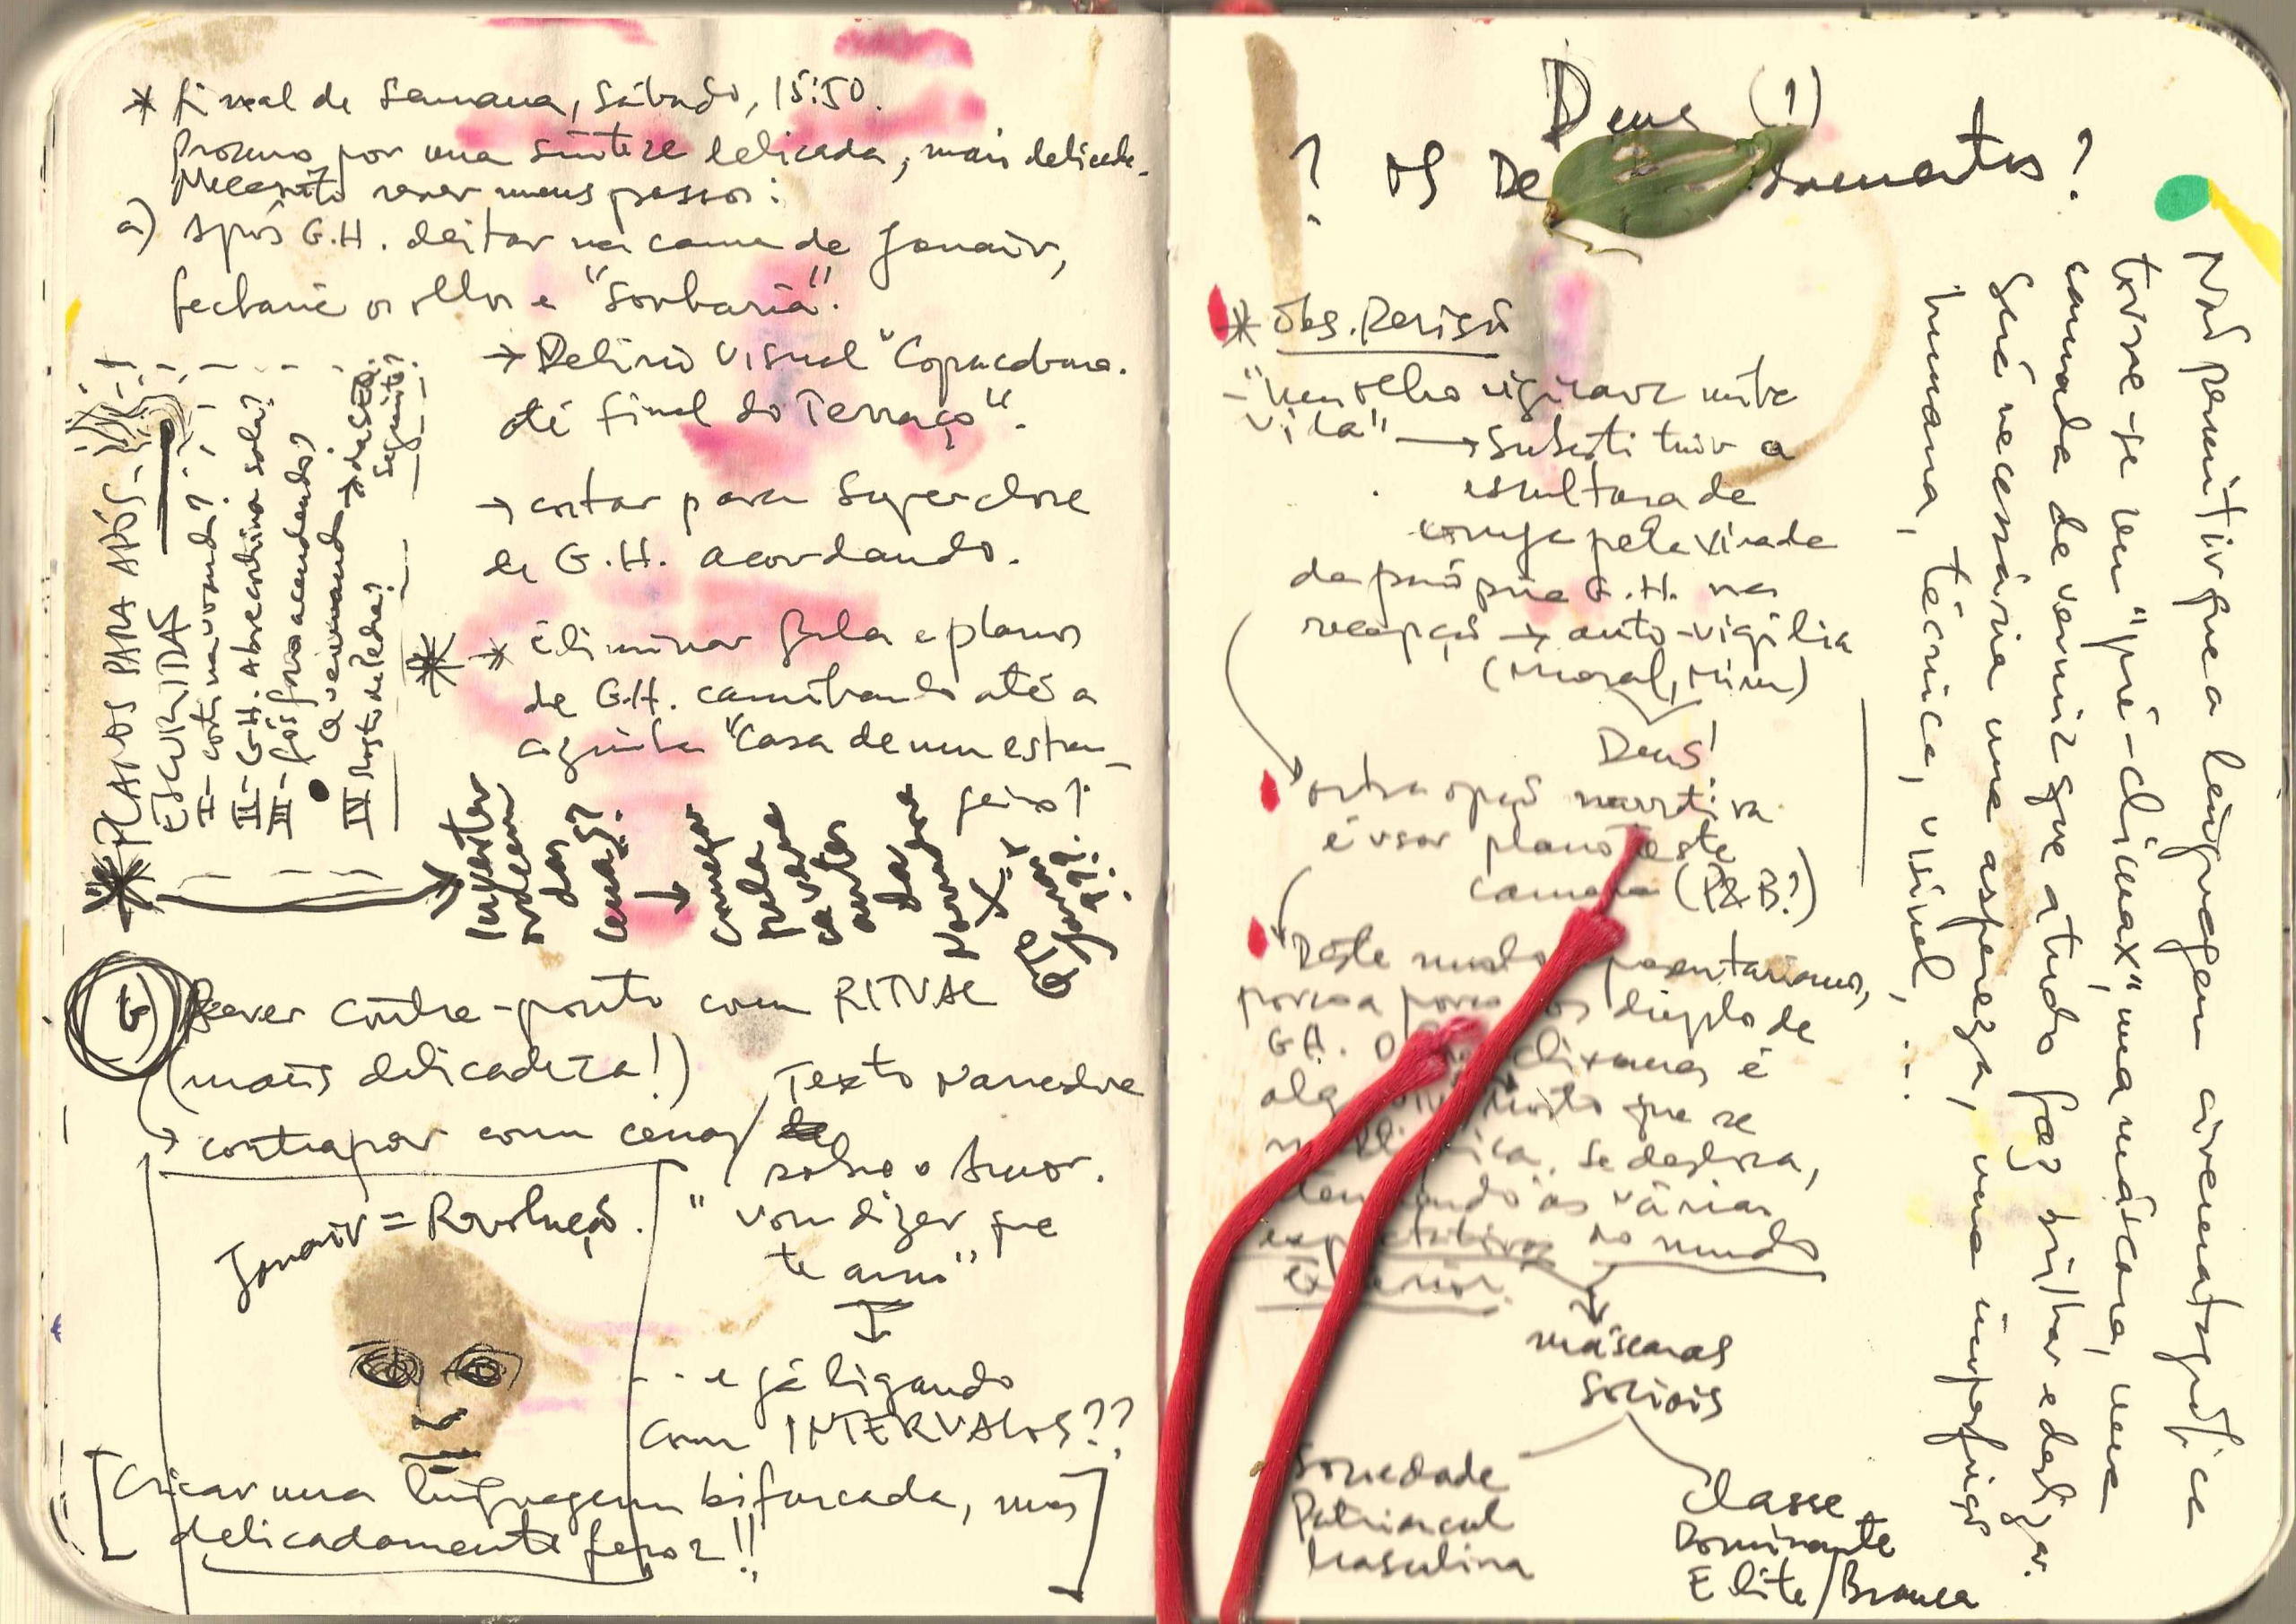 * final de semana, sábado, 15:50.
Procuro por uma síntese delicada, mais delicada.
Necessito rever meus passos:
a) após G.H. deitar na cama de Janair,
fecharia os olhos e "sonharia".
→ Delírio visual "Copacabana.
até final do Terraço".
→ cortar para superclose
de G.H. acordando.
* * eliminar fala e planos
de G.H. caminhando até a
cozinha "Casa de um estran-
geiro?
* PLANOS PARA APÓS
ESCURIDÃO
I - cortina voando?
II - G.H. Abre cortina sala?
III - fósforo acendendo?
queimando → da SEQ.
seguinte?
IV Rosto de Pedra?
Inverter
ordem
das
cenas?
↓
começar
pela
caverna
antes
da
Narradora
X
Janair?!
b) Rever contra-ponto com RITUAL
(mais delicadeza!)
→ contrapor com cenas/
Texto Narradora
sobre o Amor.
"vou dizer que
te amo"
... e já ligando
com INTERVALOS??
Janair = Revolução.
[Criar uma linguagem bifurcada, mas
delicadamente feroz!!]
Deus (!)
? os De
? 
* Obs. Revisão
- "Um olho vigiava minha
vida" → substituir a
escultura de
coruja pela virada
da própria G.H. na
recepção → auto-vigília
(moral, mim)
Deus!
outra opção narrativa
é usar plano teste
camera (P&B?)
Deste modo apresentaríamos,
pouco a pouco os duplos de
GH. O
que se
se desloca,
às várias
expectativas do mundo
exterior.
máscaras
sociais
Sociedade
Patriarcal
Masculina
Classe
Dominante
Elite/Branca
Não permitir que a linguagem cinematográfica
torne-se um "pré-clímax", uma máscara, uma
camada de verniz que a tudo faz brilhar e deslizar.
Será necessária uma aspereza, uma imperfeição
humana, técnica, visível, ...